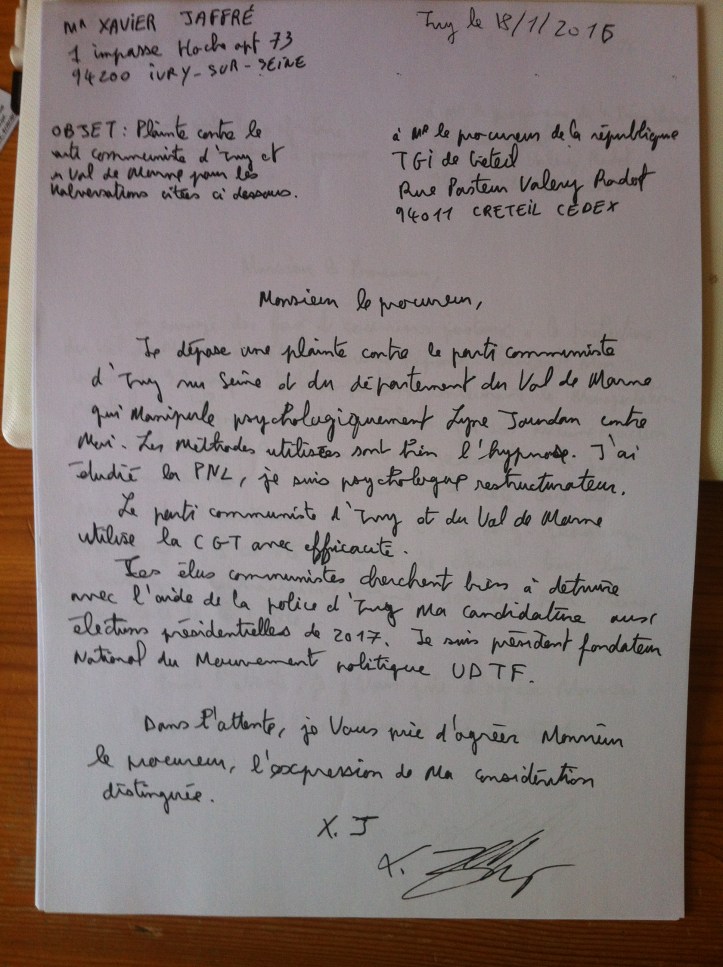 Mr XAVIER JAFFRÉ
1 impasse Hoche apt 73
94200 IVRY-SUR-SEINE
Ivry le 18/1/2015
OBJET : Plainte contre le
parti communiste d'Ivry et
Val de Marne pour les
Malversations citées ci dessous.
à Mr le procureur de la république
TGI de Créteil
Rue Pasteur Valery Radot
94011 CRETEIL CEDEX
Monsieur le procureur,
Je dépose une plainte contre le parti communiste
d'Ivry sur Seine et du département du Val de Marne
qui Manipule psychologiquement Lyne Jourdan contre
Moi. Les Méthodes utilisées sont bien l'hypnose. J'ai
étudié la PNL, je suis psychologue restructurateur.
Le parti communiste d'Ivry et du Val de Marne
utilise la CGT avec efficacité.
Les élus communistes cherchent bien à détruire
avec l'aide de la police d'Ivry Ma candidature aux
élections présidentielles de 2017. Je suis président fondateur
National du Mouvement politique UDTF.
Dans l'attente, je Vous prie d'agréer Monsieur
le procureur, l'expression de Ma considération
distinguée.
X. J
X.